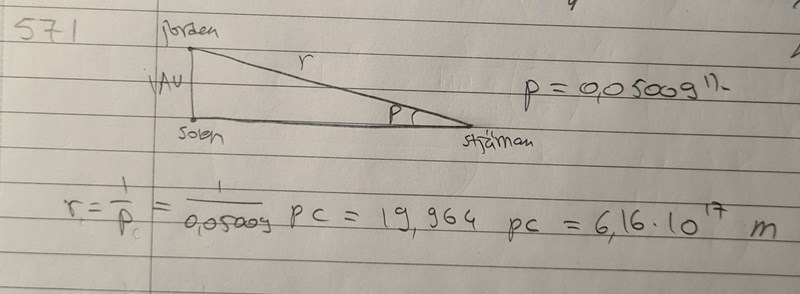 571
Jorden
r
1 AU
p = 0,05009"
P
Solen
stjärnan
r = 1/p = 1/0,05009 pc = 19,964 pc = 6,16·10¹⁷ m